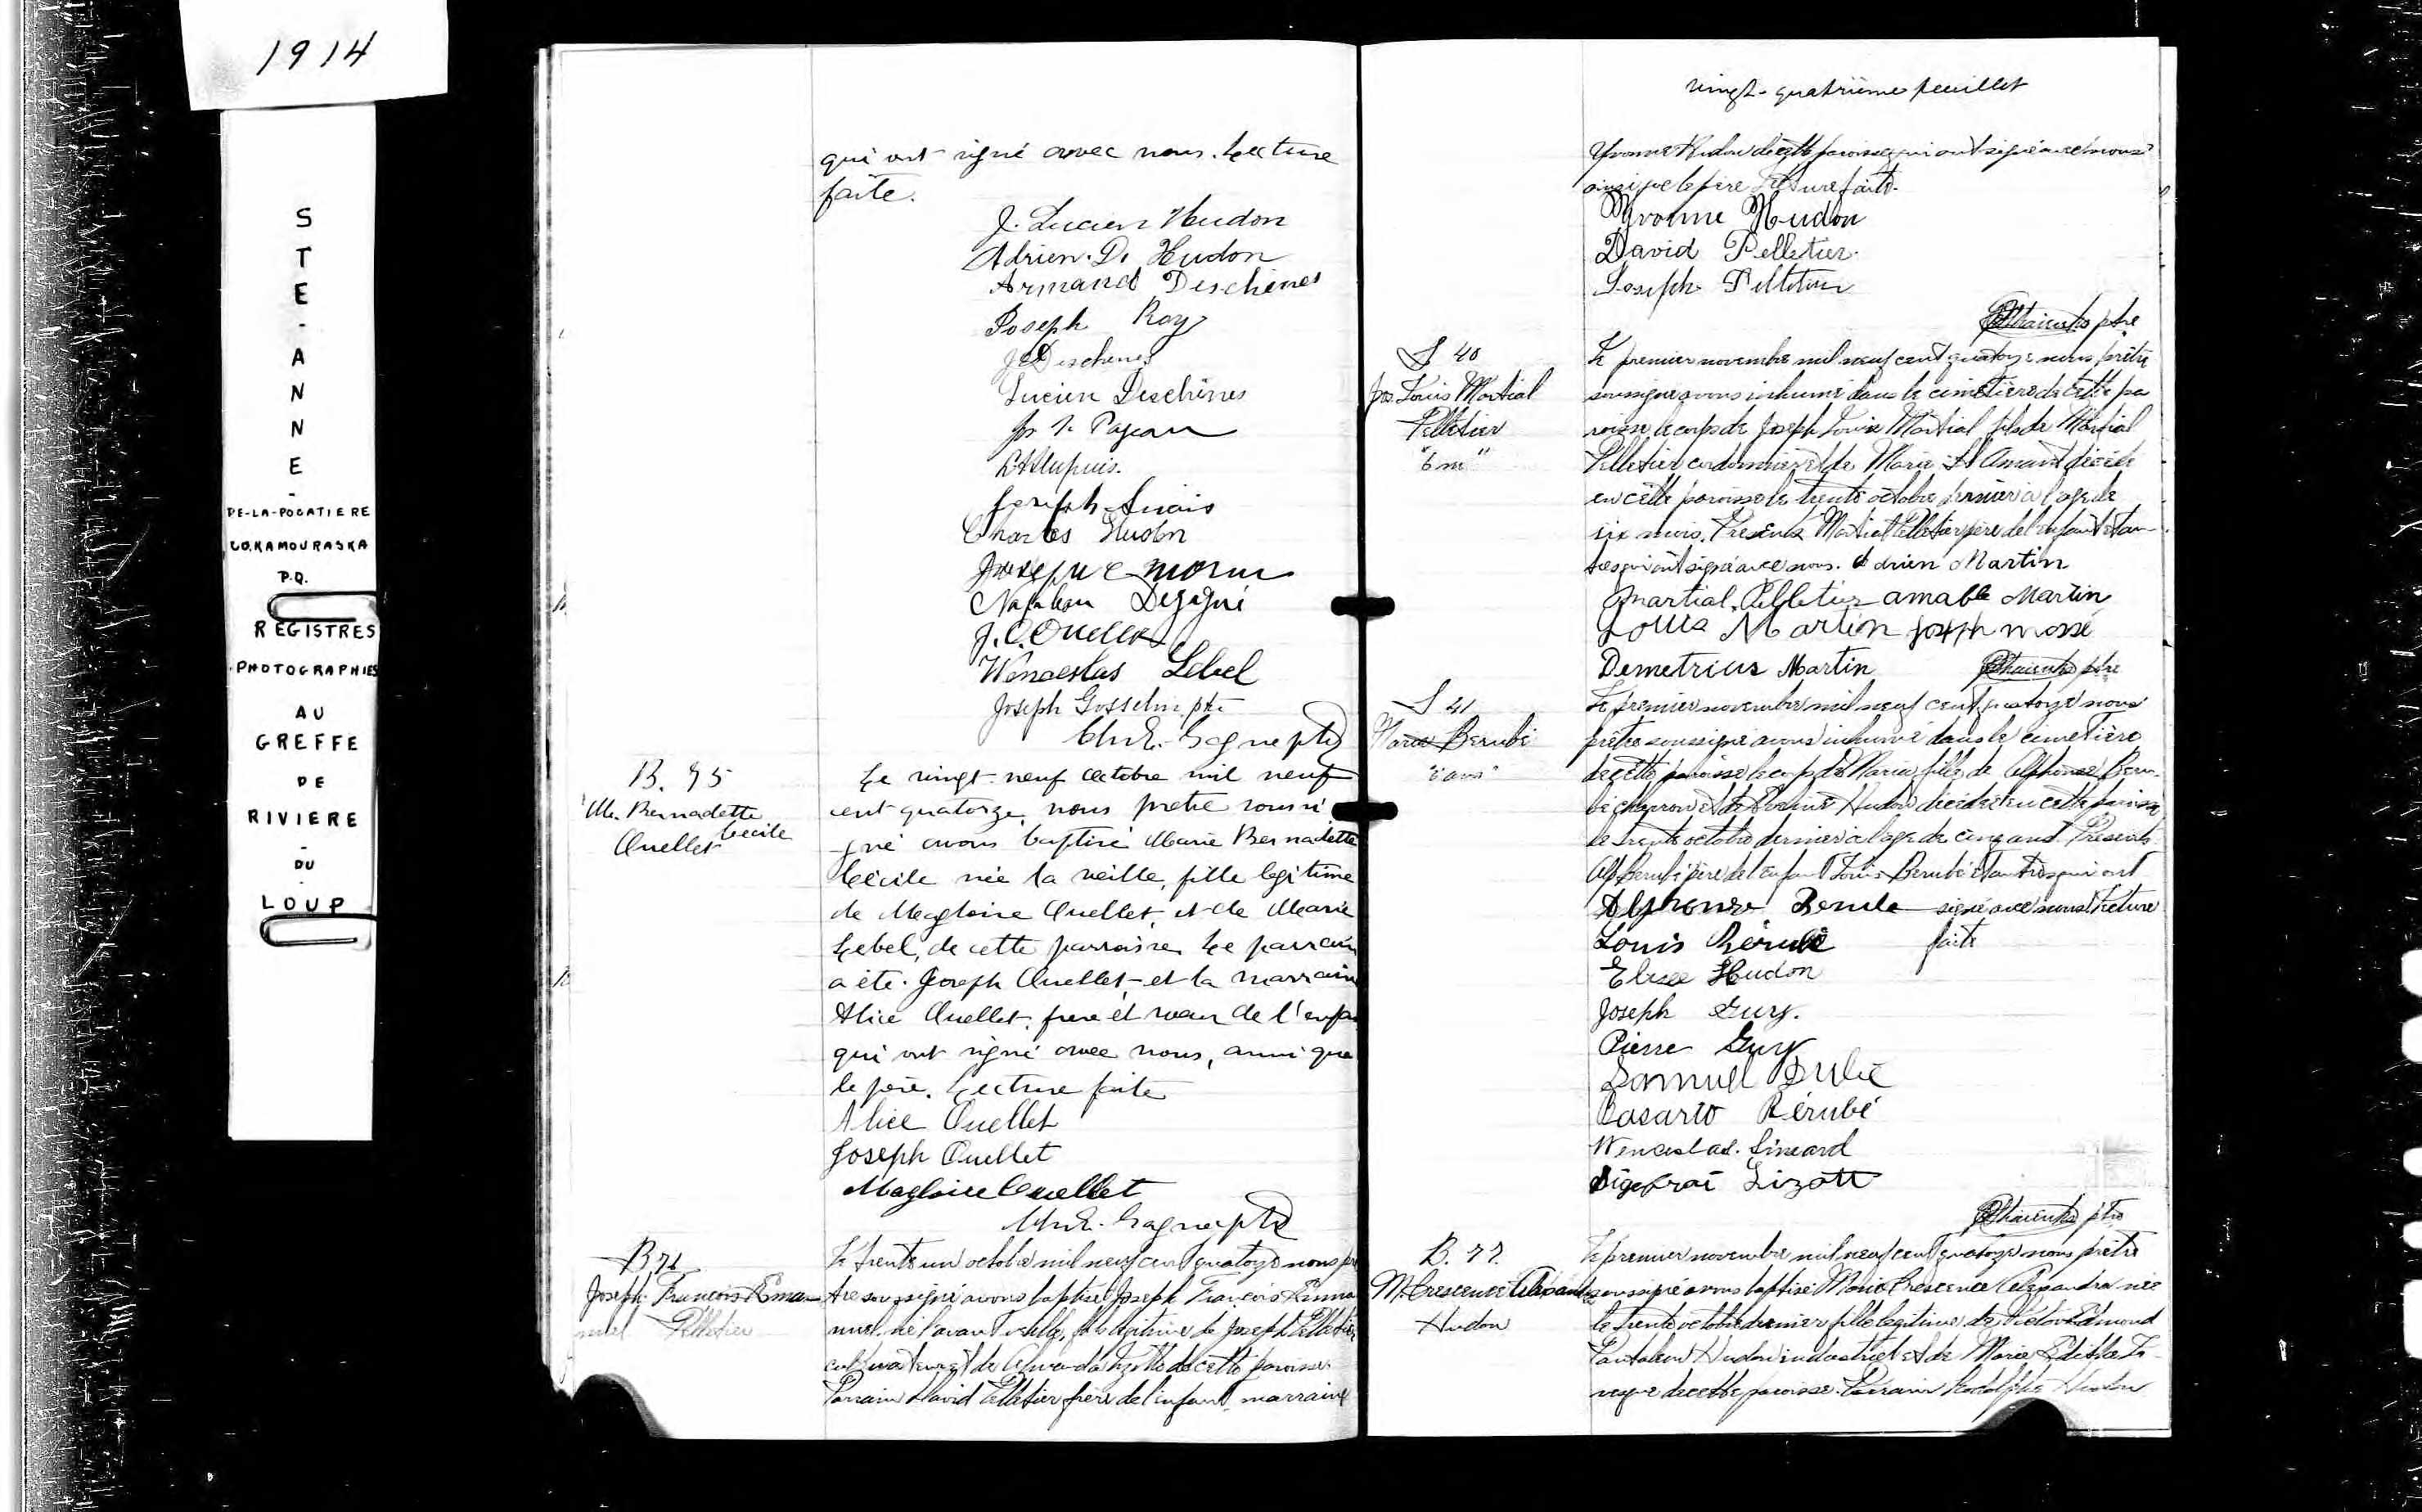 1914
STE-ANNE-
DE-LA-POCATIERE
CO. KAMOURASKA
P.Q.
REGISTRES
PHOTOGRAPHIES
AU
GREFFE
DE
RIVIERE
-
DU
-
LOUP
qui ont signé avec nous. Lecture
faite.
J. Lucien Hudon
Adrien. D. Hudon
Armand Deschènes
Joseph Roy
Deschenes
Lucien Deschènes
Joseph
Charles Hudon
Joseph Morin
J. C. Ouellet
Wenceslas Lebel
Joseph Gosselin ptr
B. 75
M. Bernadette
Cécile
Ouellet
Le vingt-neuf octobre mil neuf
cent quatorze, nous prêtre soussi
gné avons baptisé Marie Bernadette
Cécile née la veille, fille legitime
de Magloire Ouellet, et de Marie
Lebel, de cette parroisse. Le parrain
a été. Joseph Ouellet et la marrain
Alice Ouellet, frère et soeur de l'enfa
qui ont signé avec nous, ainsi que
le père. Lecture faite
Alice Ouellet
Joseph Ouellet
Magloire Ouellet
B 76
Joseph François Emma
nuel Pelletier
Le trente un octobre mil neuf cent quatorze nous pr
tre soussigné avons baptisé Joseph François Emma
nuel né l'avant veille, fils légitime de Joseph Pelletier
cultivateur et de Lizotte de cette paroisse.
Parrain David Pelletier frère de l'enfant, marraine
vingt-quatrième feuillet
Yvonne Hudon de cette paroisse qui ont signé avec nous
ainsi que le père. Lecture faite.
Yvonne Hudon
David Pelletier.
Joseph Pelletier
ptre
S 40
Jos. Louis Martial
Pelletier
"6 m"
Le premier novembre mil neuf cent quatorze nous prêtre
soussigné avons inhumé dans le cimetière de cette pa
roisse le corps de Joseph Louis Martial fils de Martial
Pelletier cordonnier et de Marie St Amant décédé
en cette paroisse le trente octobre dernier à l'age de
six mois. Présents Martial Pelletier père de l'enfant et au-
tres qui ont signé avec nous. Adrien Martin
Martial Pelletier amable Martin
Louis Martin Joseph
Demetrius Martin ptre
S 41
Maria Berubé
Le premier novembre mil neuf cent quatorze nous
prêtre soussigné avons inhumé dans le cimetière
de cette paroisse le corps de Maria fille de Alphonse Beru-
bé charron et de Hudon décédée en cette paroisse
le trente octobre dernier à l'age de cinq ans. Présents
Alp. Berubé père de l'enfant Louis Berubé et autres qui ont
Alphonse Berube signé avec nous. Lecture
Louis Bérubé faite
Elisée Hudon
Joseph Guy.
Pierre Guy
Samuel Dubé
Bérubé
Wenceslas. Simard
Lizott
ptre
B. 77.
M. Crescence Alexandra
Hudon
Le premier novembre mil neuf cent quatorze nous prêtre
soussigné avons baptisé Marie Crescence Alexandra née
le trente octobre dernier fille légitime de Edmond
Pantaléon Hudon industriel et de Marie
de cette paroisse. Parrain Rodolphe Hudon